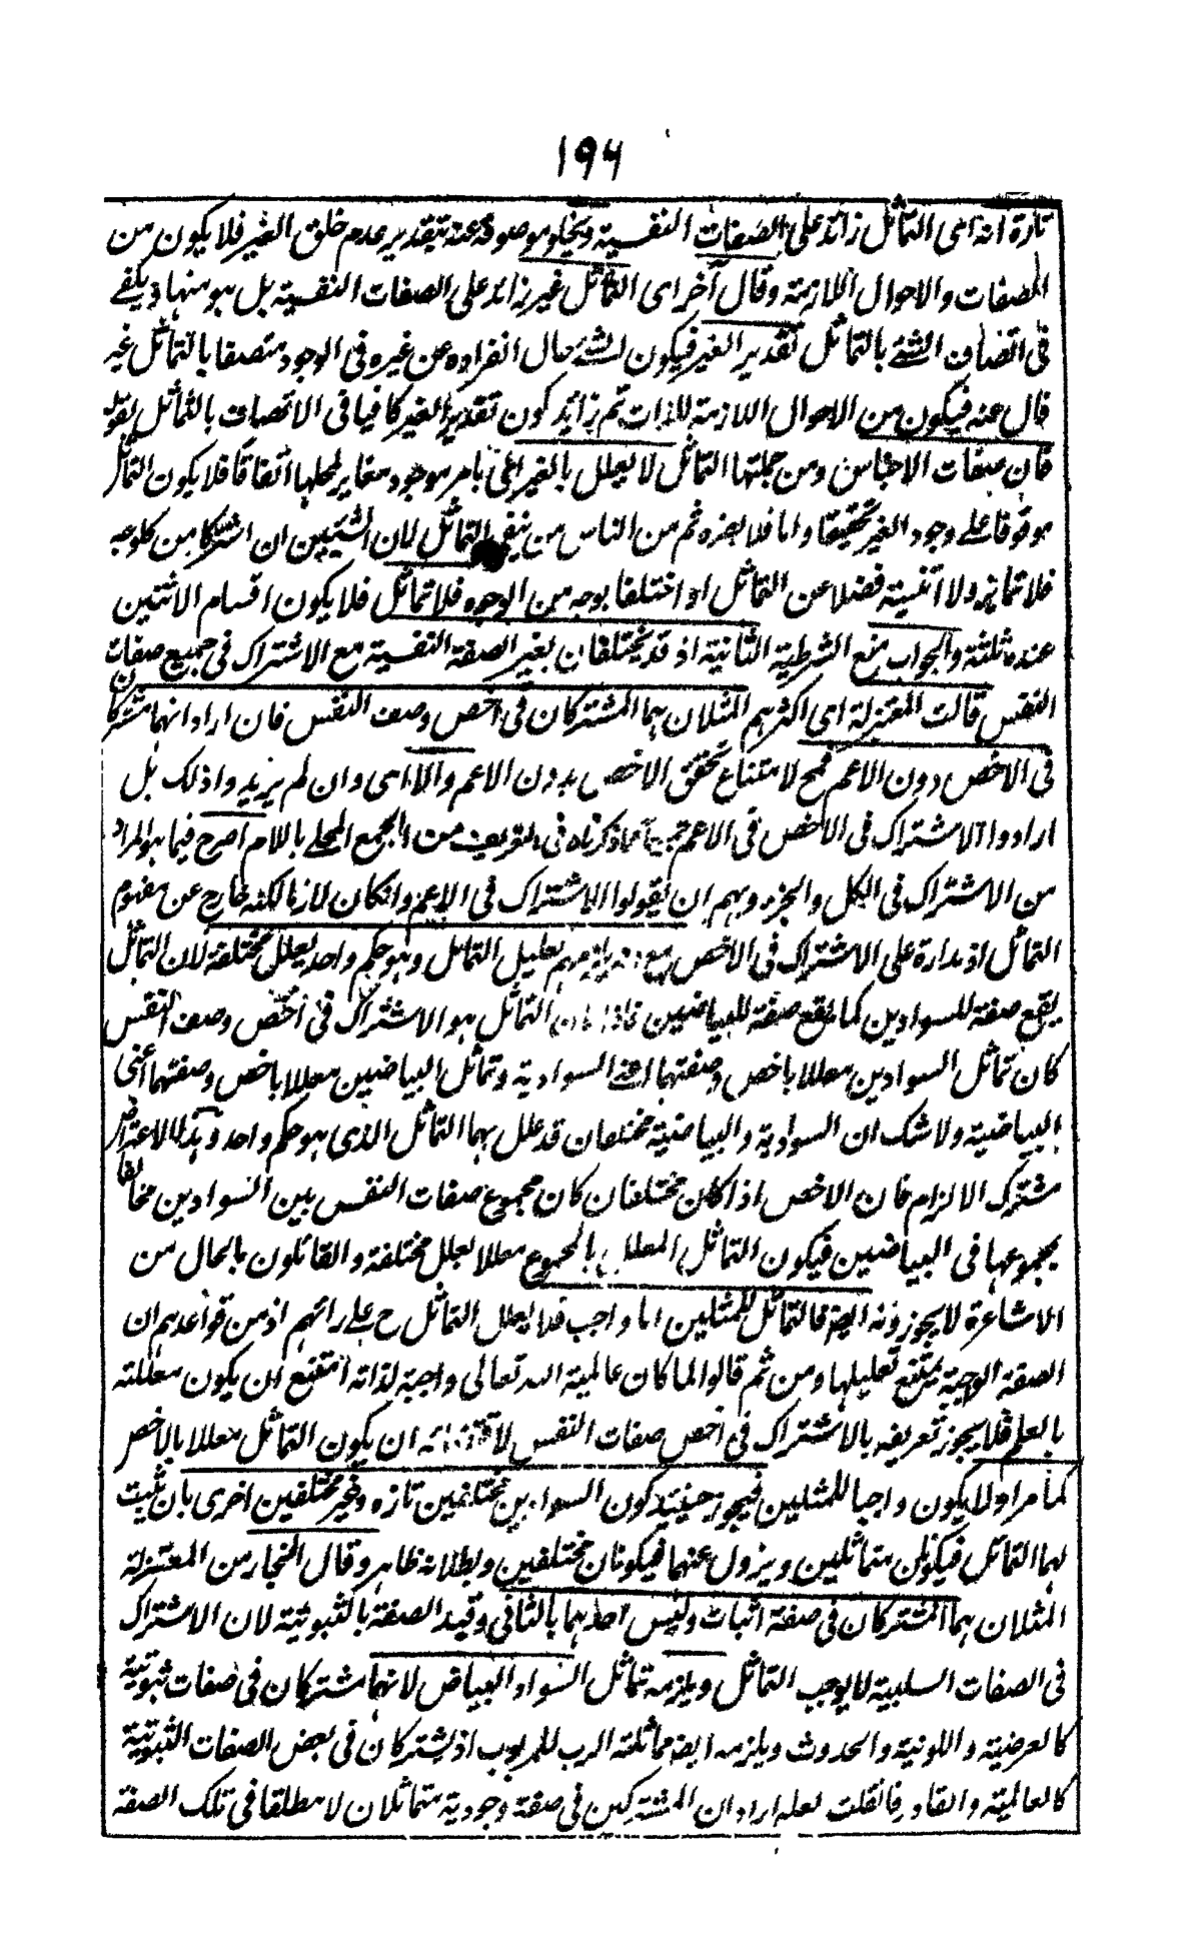 ۱۹۶
تارة انه اى التماثل زائد على الصفات النفسية ويخلو موصوفه عنه بتقدير عدم خلق الغير فلا يكون من
الصفات والاحوال اللازمة وقال آخر اى التماثل غير زائد على الصفات النفسية بل هو منها ذ يكفے
فى اتصاف الشئ بالتماثل تقدير الغير فيكون الشئ حال انفراده عن غيره فى الوجود متصفا بالتماثل غير
قال عنه فيكون من الاحوال اللازمة للذات ثم زائد كون تقدير الغير كافيا فى الاتصاف بالتماثل بقوله
فان صفات الاجناس ومن جملتها التماثل لا يعلل بالغير اى بامر موجود مغاير لمحلها اتفاقا فلا يكون التماثل
موقوفا على وجود الغير تحقيقا واما فلا يضره ثم من الناس من ينفى التماثل لان الشيئين ان اشتركا من كل وجه
فلا تمايز ولا اثنينية فضلا عن التماثل او اختلفا بوجه من الوجوه فلا تماثل فلا يكون اقسام الاثنين
عنده ثلثة والجواب منع الشرطية الثانية اذ قد يختلفان بغير الصفة النفسية مع الاشتراك فى جميع صفات
النفس قالت المعتزلة اى اكثرهم المثلان هما المشتركان فى اخص وصف النفس فان ارادوا انهما مشتركان
فى الاخص دون الاعم فمح لامتناع تحقق الاخص بدون الاعم والا اى وان لم يريدوا ذلك بل
ارادوا الاشتراك فى الاخص فى الاعم جميعا فما ذكرناه فى التعريف من الجمع المحلى باللام اصرح فيما هو المراد
من الاشتراك فى الكل والجزء ولهم ان يقولوا الاشتراك فى الاعم وان كان لازما لكنه خارج عن مفهوم
التماثل اذ مداره على الاشتراك فى الاخص مع انه يلزمهم تعليل التماثل وهو حكم واحد بعلل مختلفة لان التماثل
يقع صفة للسوادين كما يقع صفة للبياضين فاذا كان التماثل هو الاشتراك فى اخص وصف النفس
كان تماثل السوادين معللا باخص وصفتهما اعنى السوادية وتماثل البياضين معللا باخص وصفتهما اعنى
البياضية ولا شك ان السوادية والبياضية مختلفان قد علل بهما التماثل الذى هو حكم واحد وهذا الاعتراض
مشترك الالزام فان الاخص اذا كان مختلفان كان مجموع صفات النفس بين السوادين مخالفا
لمجموعها فى البياضين فيكون التماثل المعلل بالمجموع معللا بعلل مختلفة والقائلون بالحال من
الاشاعرة لا يجوزونه ايضا فالتماثل للمثلين اما واجب فلا يعلل التماثل ح على رائهم اذ من قواعدهم ان
الصفة الواجبة يمتنع تعليلها ومن ثم قالوا لما كان عالمية الله تعالى واجبة لذاته امتنع ان يكون معللة
بالعلم فلا يجوز تعريفه بالاشتراك فى اخص صفات النفس لاقتضائه ان يكون التماثل معللا بالاخص
كما مر او لا يكون واجبا للمثلين فيجوز حينئذ كون السوادين مختلفين تارة وغير مختلفين اخرى بان يثبت
لهما التماثل فيكونان متماثلين ويزول عنهما فيكونان مختلفين وبطلانه ظاهر وقال النجار من المعتزلة
المثلان هما المشتركان فى صفة اثبات وليس احدهما بالثانى وقيد الصفة بالثبوتية لان الاشتراك
فى الصفات السلبية لا يوجب التماثل ويلزمه تماثل السواد والبياض لانهما مشتركان فى صفات ثبوتية
كالعرضية واللونية والحدوث ويلزمه ايضا مماثلة الرب للمربوب اذ يشتركان فى بعض الصفات الثبوتية
كالعالمية والقادرية فان قلت لعله اراد ان المشتركين فى صفة وجودية متماثلان لا مطلقا فى تلك الصفة